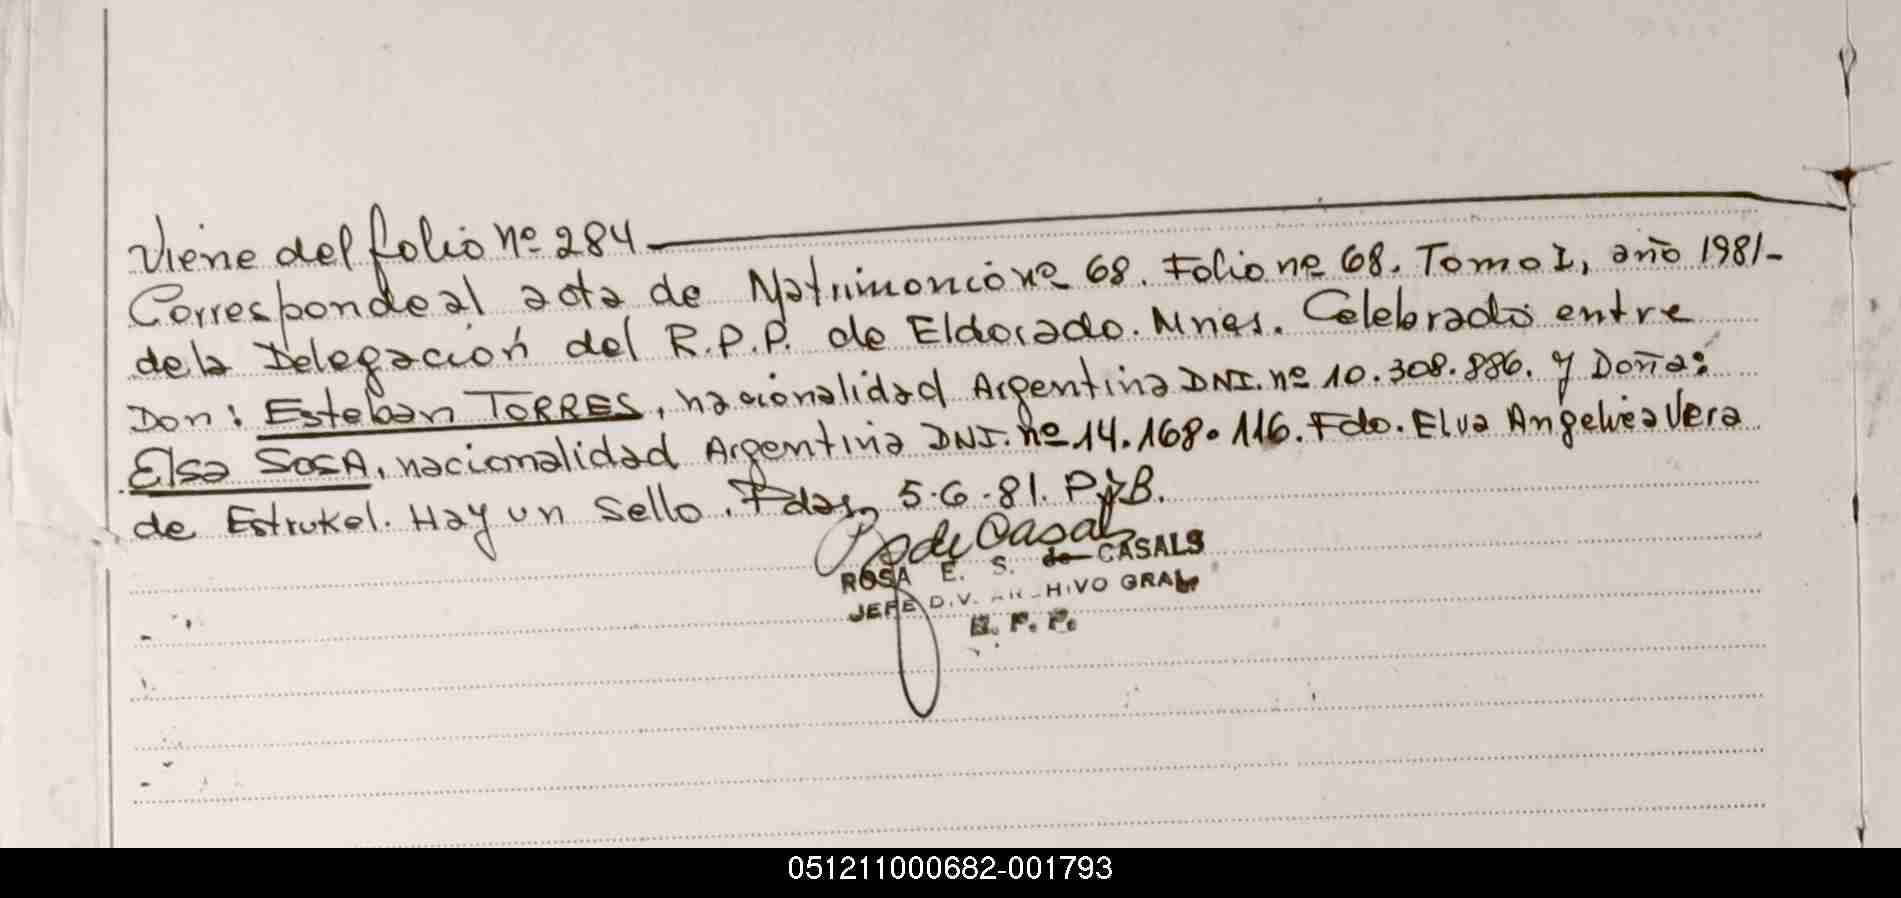 Viene del folio nº 284
Corresponde al acta de Matrimonio nº 68. Folio nº 68. Tomo I, año 1981-
de la Delegación del R.P.P. de Eldorado. Mnes. Celebrado entre
Don: Esteban TORRES, nacionalidad Argentina DNI. nº 10.308.886. y Doña:
Elsa SOSA, nacionalidad Argentina DNI. nº 14.168.116. Fdo. Elva Angelica Vera
de Estrukel. Hay un Sello. Pdas, 5-6-81. P.B.
R de Casals
ROSA E. S. de CASALS
JEFE DIV. ARCHIVO GRAL.
R. P. P.
051211000682-001793